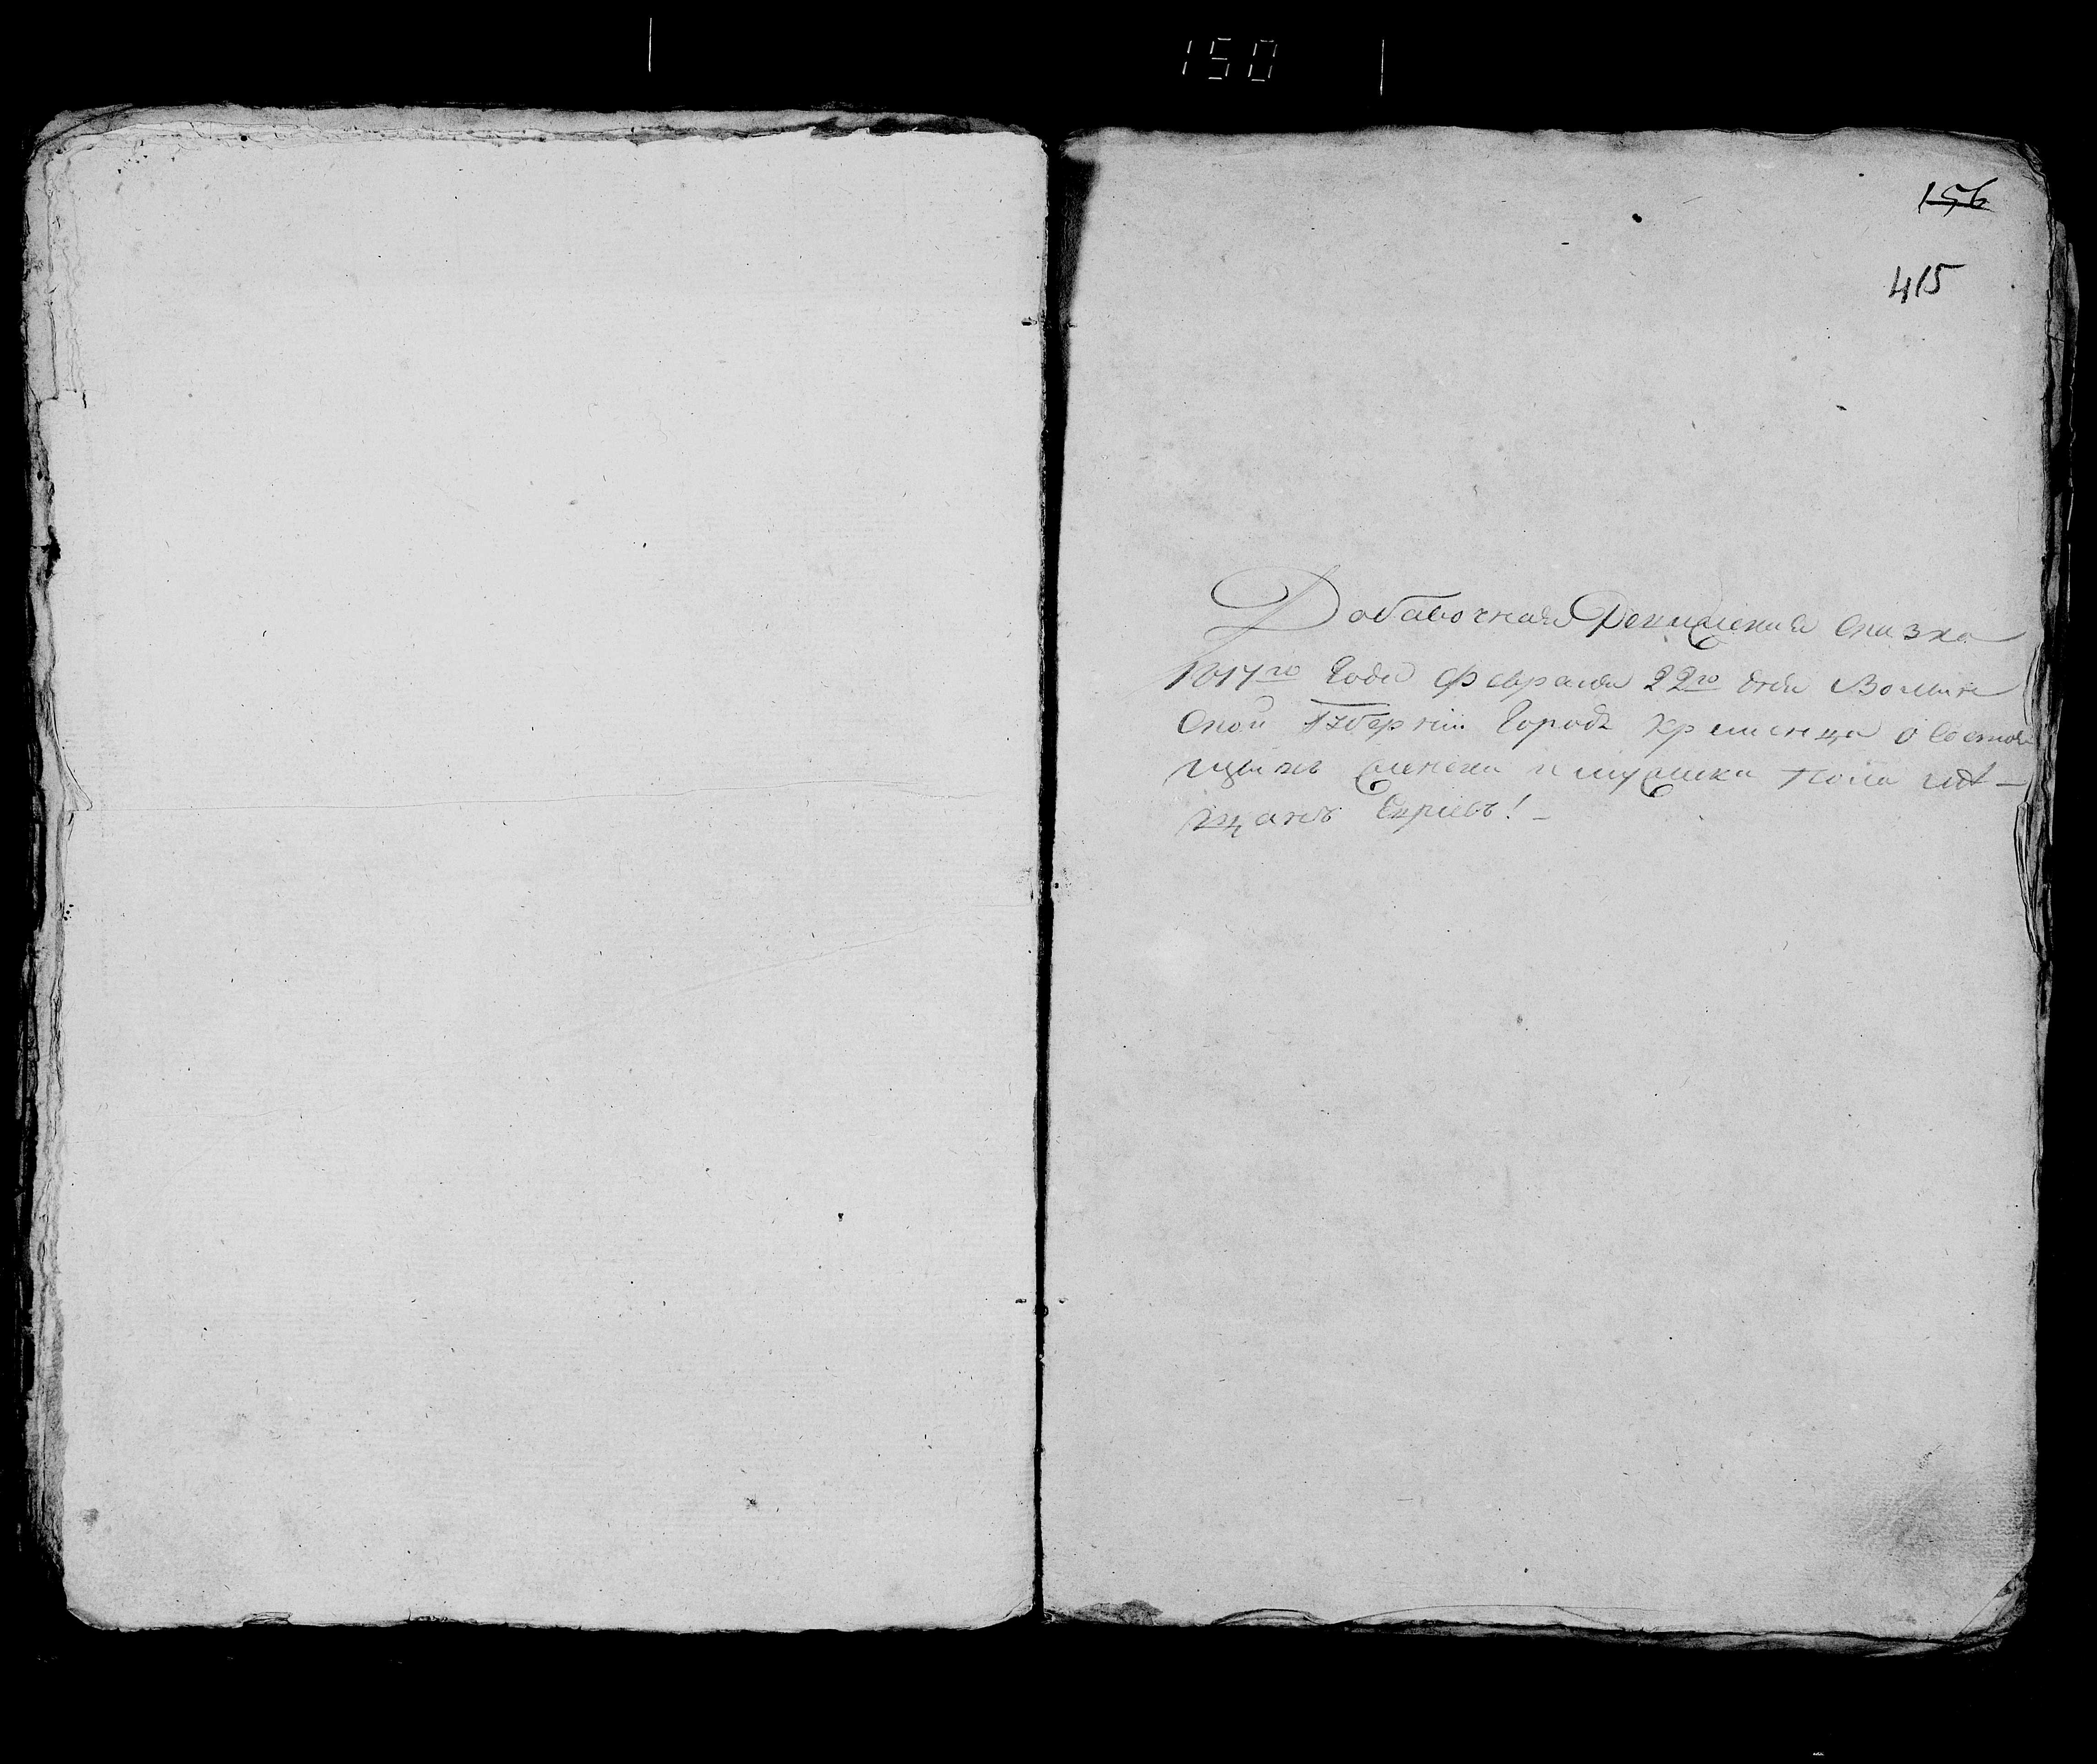 150
156
415
Добавочная Ревизская Сказка
1817го Года Февраля 22го дня Волын
Ской Губерніи Города Кременца о Состоя
щихъ женска и мужска пола мѣ-
щанъ Евреевъ! -